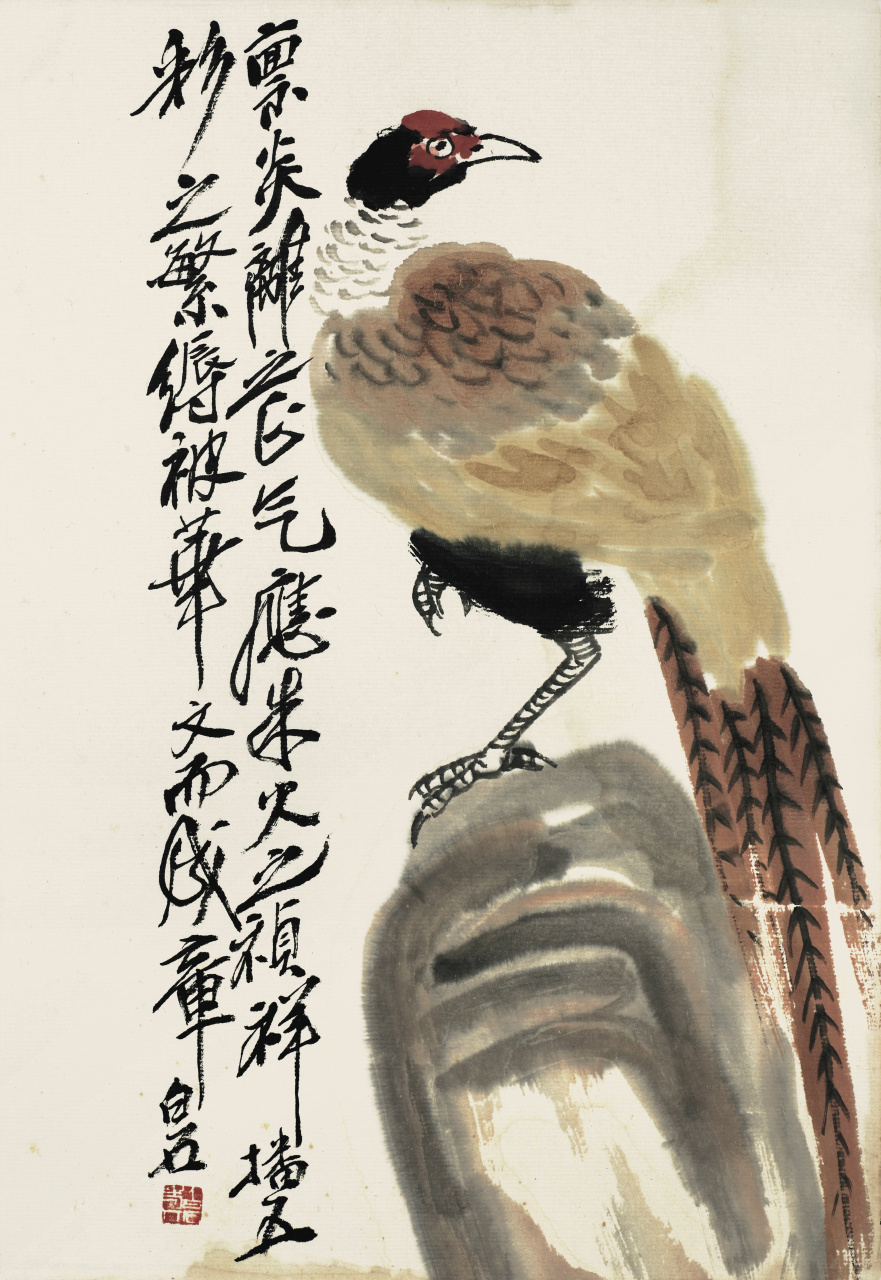 禀炎離之气應朱火之禎祥播五
彩之繁縟被華文而成章
白石